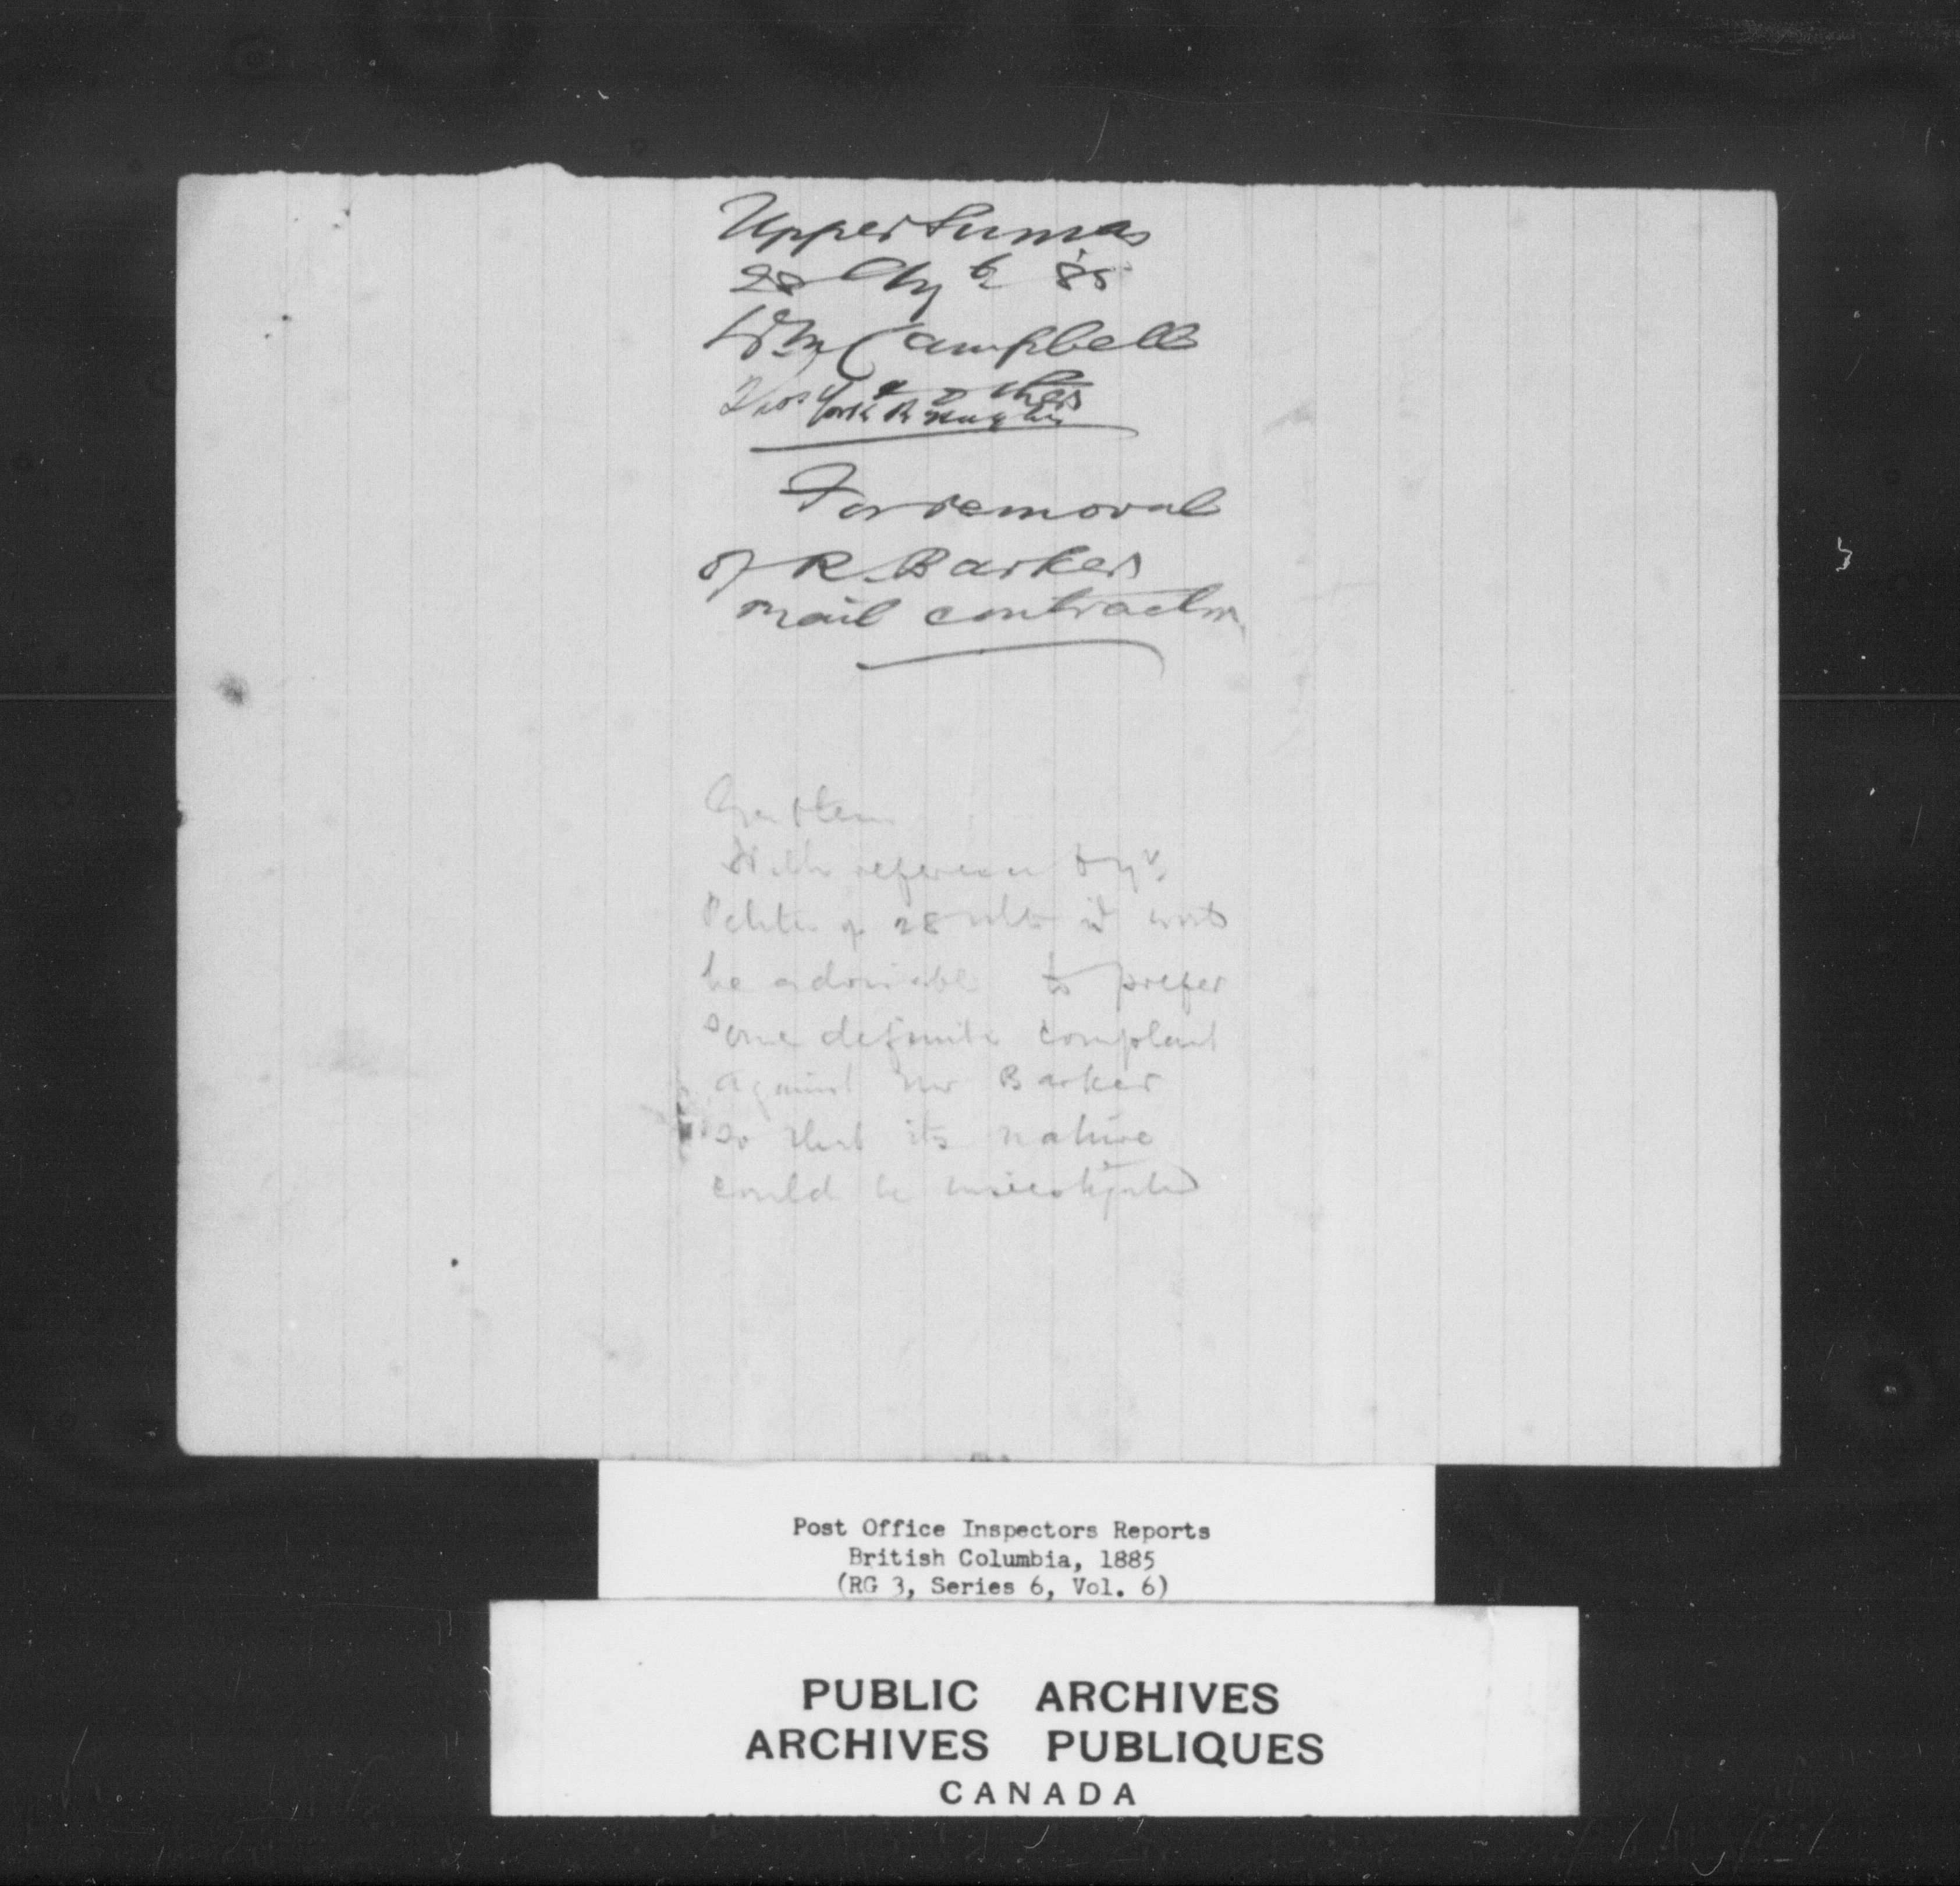 Upper Sumas
28 '85
Wm Campbell
Thos York & others
For removal
of R. Barker
mail contractor
Gentlem
With reference to yr
Petition of 28 ulto it would
be advisable to prefer
some definite complaint
against Mr Barker
so that its nature
could be investigated
Post Office Inspectors Reports
British Columbia, 1885
(RG 3, Series 6, Vol. 6)
PUBLIC ARCHIVES
ARCHIVES PUBLIQUES
CANADA